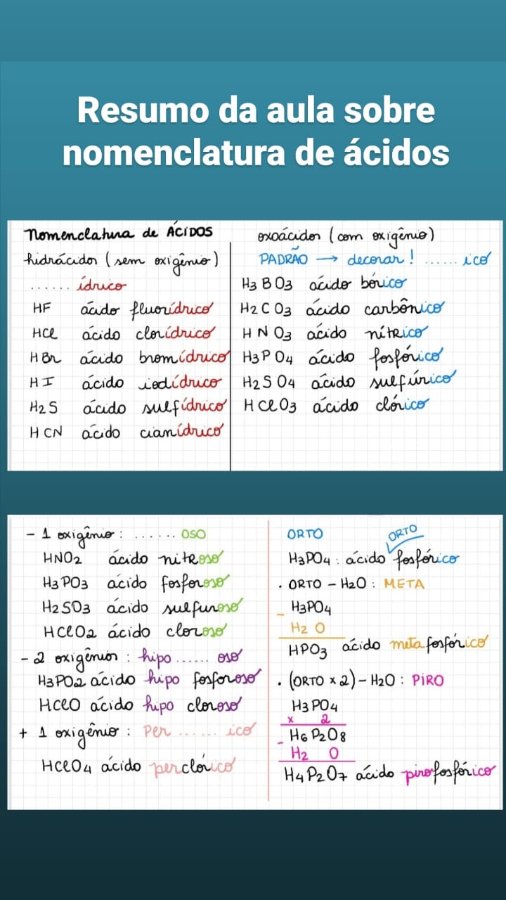 Resumo da aula sobre
nomenclatura de ácidos
nomenclatura de ÁCIDOS
hidrácidos (sem oxigênio)
...... ídrico
HF ácido fluorídrico
HCl ácido clorídrico
HBr ácido bromídrico
HI ácido iodídrico
H2S ácido sulfídrico
HCN ácido cianídrico
oxoácidos (com oxigênio)
PADRÃO → decorar! ...... ico
H3BO3 ácido bórico
H2CO3 ácido carbônico
HNO3 ácido nítrico
H3PO4 ácido fosfórico
H2SO4 ácido sulfúrico
HClO3 ácido clórico
- 1 oxigênio: ...... oso
HNO2 ácido nitroso
H3PO3 ácido fosforoso
H2SO3 ácido sulfuroso
HClO2 ácido cloroso
- 2 oxigênios: hipo ...... oso
H3PO2 ácido hipo fosforoso
HClO ácido hipo cloroso
+ 1 oxigênio: Per ...... ico
HClO4 ácido perclórico
ORTO
ORTO
H3PO4: ácido fosfórico
. ORTO - H2O: META
H3PO4
- H2 O
HPO3 ácido metafosfórico
. (ORTO x 2) - H2O: PIRO
H3PO4
x 2
H6P2O8
- H2 O
H4P2O7 ácido pirofosfórico